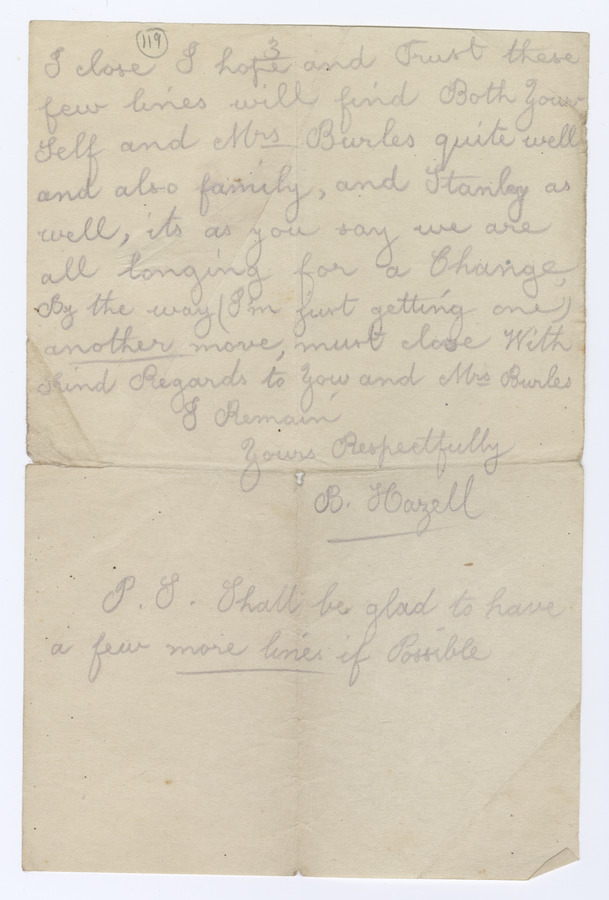 119
3
I close I hope and Trust these
few lines will find Both Your
Self and Mrs Burles quite well
and also family, and Stanley as
well, its as you say we are
all longing for a Change,
By the way (I'm just getting one)
another move, must close With
Kind Regards to You and Mrs Burles
I Remain
Yours Respectfully
B. Hazell
P.S. Shall be glad to have
a few more lines if Possible